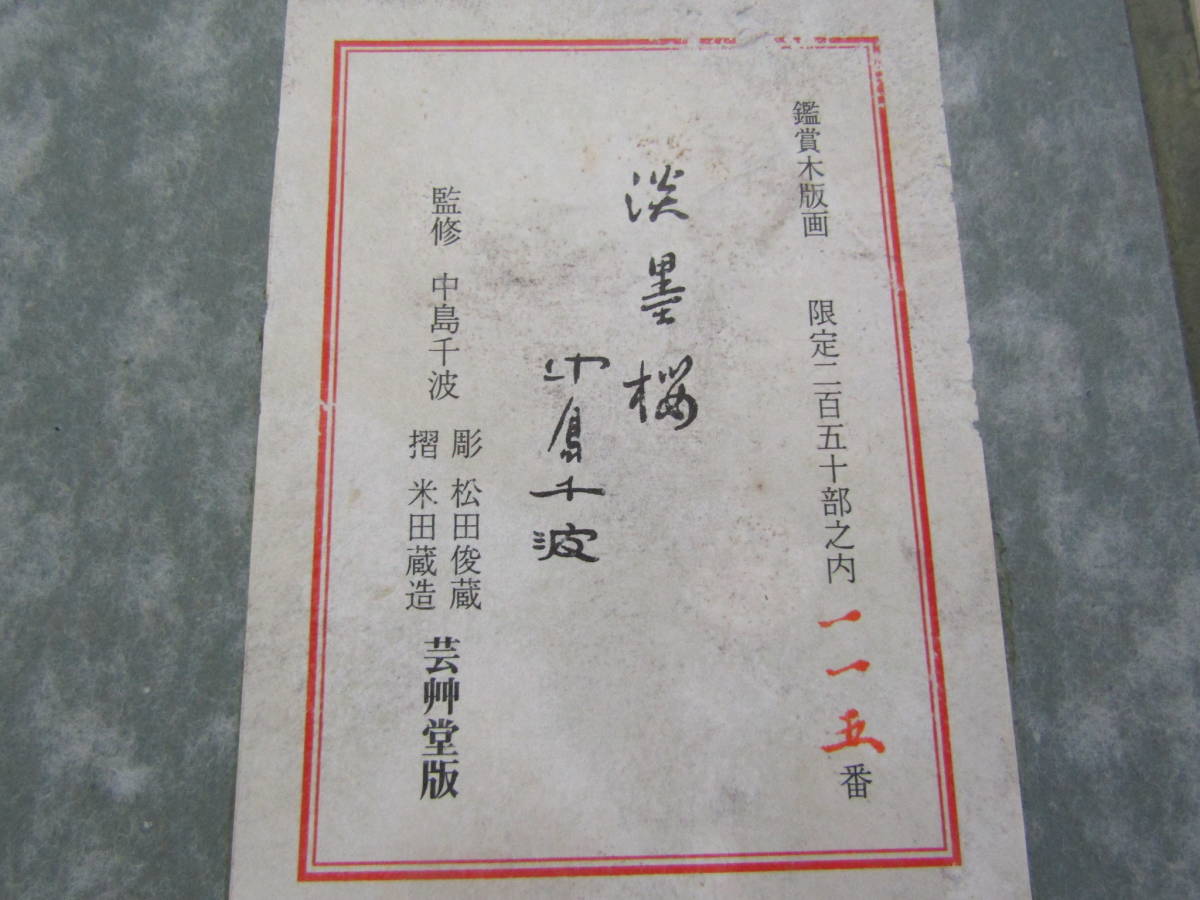 鑑賞木版画 限定二百五十部之内 一一五番
淡墨桜
中島千波
監修 中島千波
彫 松田俊蔵
摺 米田蔵造
芸艸堂版